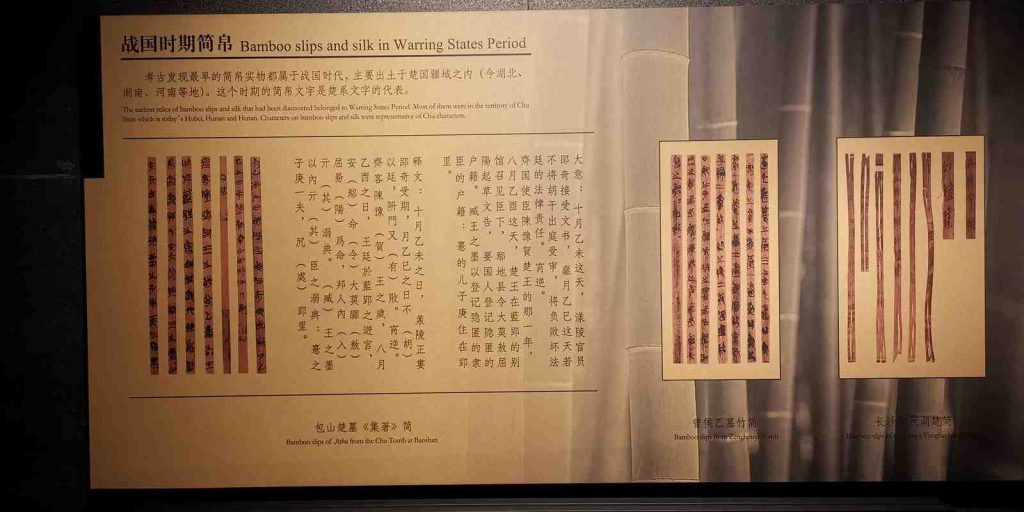 战国时期简帛 Bamboo slips and silk in Warring States Period
考古发现最早的简帛实物都属于战国时代，主要出土于楚国疆域之内（今湖北、
湖南、河南等地）。这个时期的简帛文字是楚系文字的代表。
The earliest relics of bamboo slips and silk that had been discovered belonged to Warring States Period. Most of them were in the territory of Chu
State which is today's Hubei, Hunan and Henan. Characters on bamboo slips and silk were representative of Chu characters.
大意：十月乙未这天，漾陵官员
郘奇接受文书，爨月乙巳这天若
不将胡干出庭受审，将负败坏法
廷的法律责任。 宵逆。
齊国使臣陳豫贺楚王的那一年，
八月乙酉这天，楚王在藍郢的别
馆召见臣下，鄢地县令大莫敖屈
陽起草文告，要国人登记隐匿的
户籍。臧王之墨以登记隐匿的隶
臣的户籍：憙的儿子庚住在郢
里。
释文：十月乙未之日，漾陵正娄
郘奇受期，月乙巳之日不（胡）
以廷，阩門又（有）敗。宵逆。
齊客陳豫（賀）王之歲，八月
乙酉之日，王廷於藍郢之遊宫，
安（鄢）命（令）大莫嚻（敖）
屈昜（陽）爲命，邦人内（入）
亓（其）溺典。（臧）王之墨
以内亓（其）臣之溺典：憙之
子庚一夫，凥（處）郢里。
包山楚墓《集著》简
Bamboo slips of Jizhu from the Chu Tomb at Baoshan
曾侯乙墓竹简
Bamboo slips from Zenghouyi Tomb